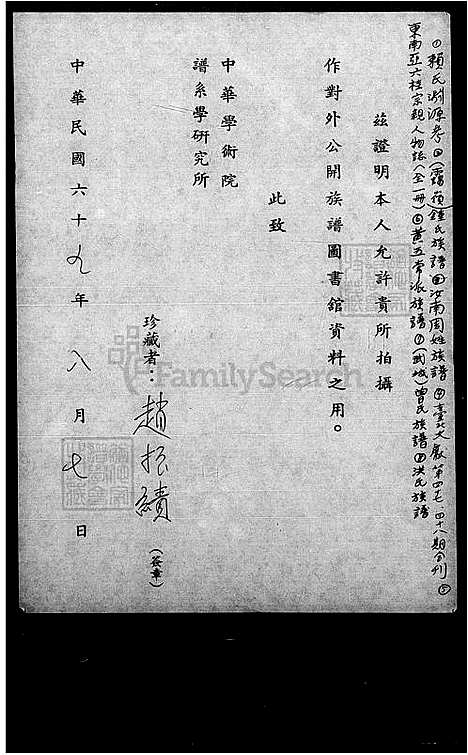 ①賴氏淵源考②(霞葑)鍾氏族譜③汝南周姓族譜④臺北文獻第四七、四十八期合刊⑤
東南亞六桂宗親人物誌(全一冊)⑥黃五常派族譜⑦(武城)曾氏族譜⑧洪氏族譜
茲證明本人允許貴所拍攝
作對外公開族譜圖書館資料之用。
此致
中華學術院
譜系學研究所
珍藏者：趙振績(簽章)
中華民國六十九年八月七日
FamilySearch